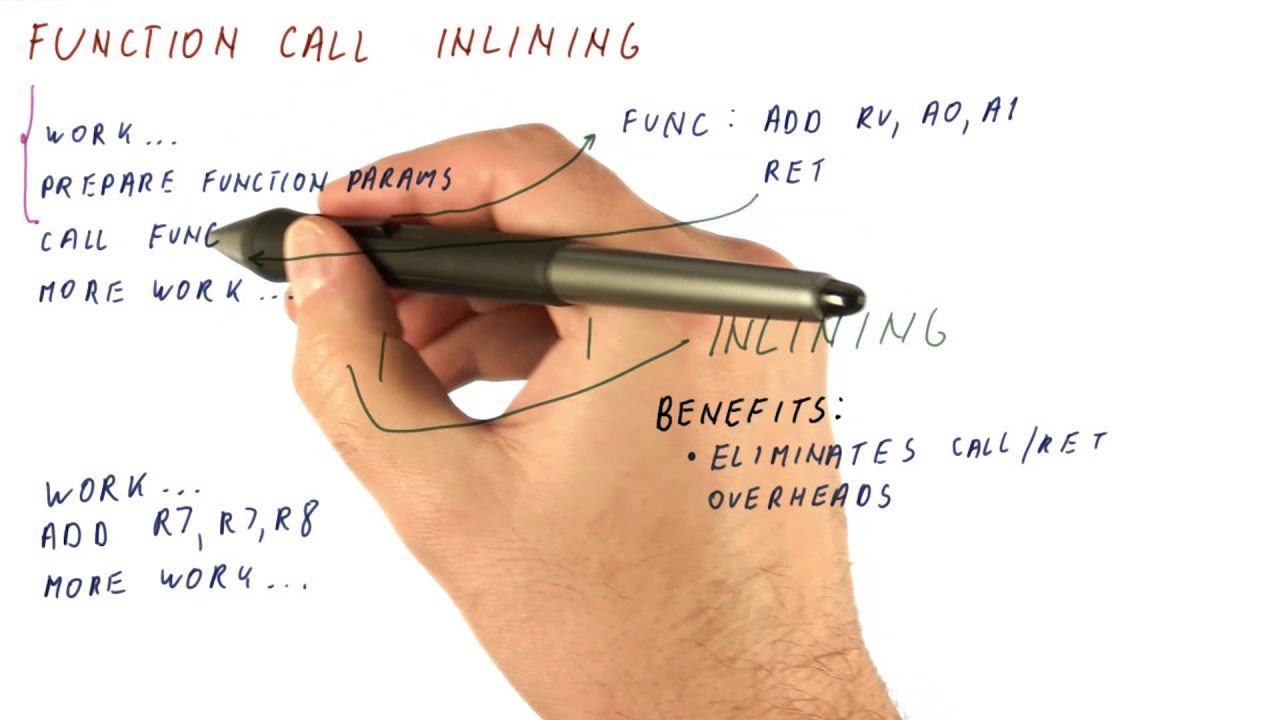 FUNCTION CALL INLINING
WORK...
PREPARE FUNCTION PARAMS
CALL FUNC
MORE WORK...
FUNC: ADD RV, A0, A1
RET
INLINING
BENEFITS:
• ELIMINATES CALL/RET
OVERHEADS
WORK...
ADD R7, R7, R8
MORE WORK...